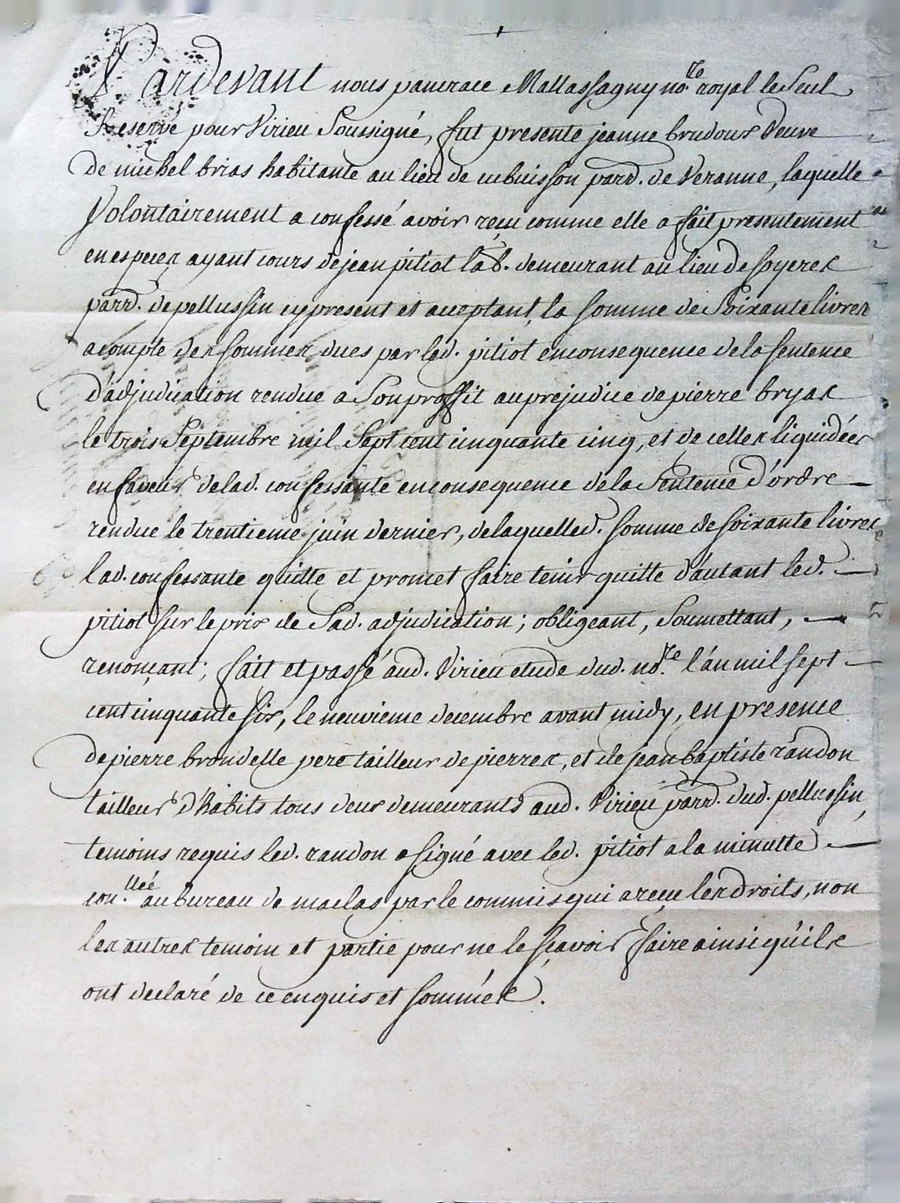 Pardevant nous pancrace Mallassagny no.re royal le Seul
Reservé pour Virieu Soussigné, fut presente jeanne brudour Veuve
de michel brias habitante au lieu de cubuisson parr. de Veranne, laquelle
Volontairement a confessé avoir reçu comme elle a fait presentement
en especes ayant cours de jean pitiot lab. demeurant au lieu de soyeres
parr. de pellussin cy present et aceptant, la somme de Soixante livres
acompte des sommes dues par led. pitiot en consequence de la sentence
d'adjudication rendue a Son proffit au prejudice de pierre bryas
le trois Septembre mil Sept cent cinquante cinq, et de celles liquidées
en faveur de lad. confessante en consequence de la Sentence d'ordre
rendue le trentieme juin dernier, de laquelled. somme de soixante livres
lad. confessante quitte et promet faire tenir quitte d'autant led.
pitiot sur le prix de Sad. adjudication; obligeant, Soumettant,
renonçant; fait et passé aud. Virieu etude dud. no.re l'an mil sept
cent cinquante six, le neuvieme decembre avant midy, en presence
de pierre brondelle pere tailleur de pierres, et de jean baptiste randon
tailleur d'habits tous deux demeurants aud. Virieu parr. dud. pellussin,
temoins requis led. randon a signé avec led. pitiot a la minutte
con.llée au bureau de maclas par le commis qui a reçu les droits, non
les autres temoin et partie pour ne le sçavoir faire ainsi qu'ils
ont declaré de ce enquis et sommés.